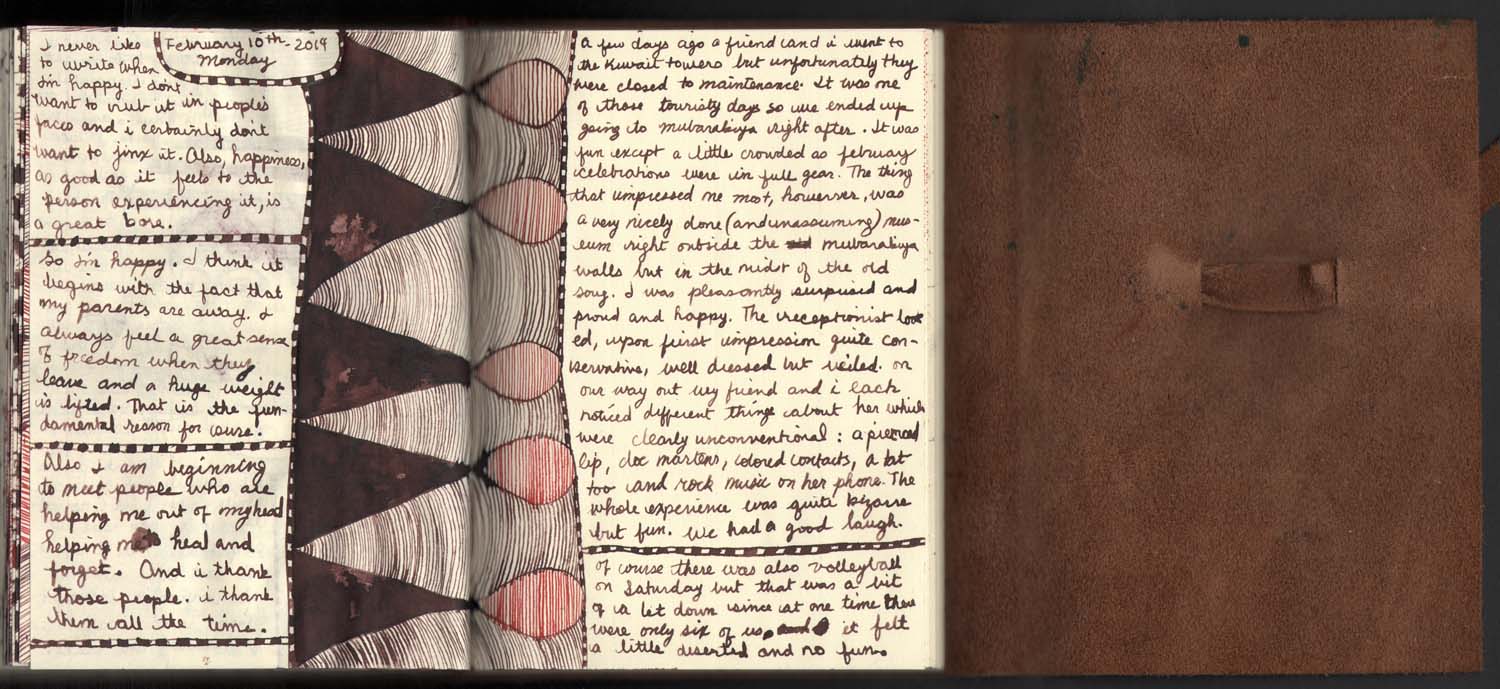 February 10th - 2014
Monday
I never like
to write when
I'm happy. I don't
want to rub it in people's
faces and i certainly don't
want to jinx it. Also, happiness,
as good as it feels to the
person experiencing it, is
a great bore.
So I'm happy. I think it
begins with the fact that
my parents are away. I
always feel a great sense
of freedom when they
leave and a huge weight
is lifted. That is the fun-
damental reason for sure.
Also I am beginning
to meet people who are
helping me out of my head
helping me heal and
forget. And i thank
those people. i thank
them all the time.
a few days ago a friend and i went to
the Kuwait towers but unfortunately they
were closed to maintenance. It was one
of those touristy days so we ended up
going to mubarakiya right after. It was
fun except a little crowded as february
celebrations were in full gear. The thing
that impressed me most, however, was
a very nicely done (and unassuming) mus-
eum right outside the mubarakiya
walls but in the midst of the old
souq. I was pleasantly surprised and
proud and happy. The receptionist look
ed, upon first impression quite con-
servative, well dressed but veiled. on
our way out my friend and i each
noticed different things about her which
were clearly unconventional : a pierced
lip, doc martens, colored contacts, a tat
too and rock music on her phone. The
whole experience was quite bizarre
but fun. We had a good laugh.
of course there was also volleyball
on Saturday but that was a bit
of a let down since at one time there
were only six of us it felt
a little deserted and no fun.